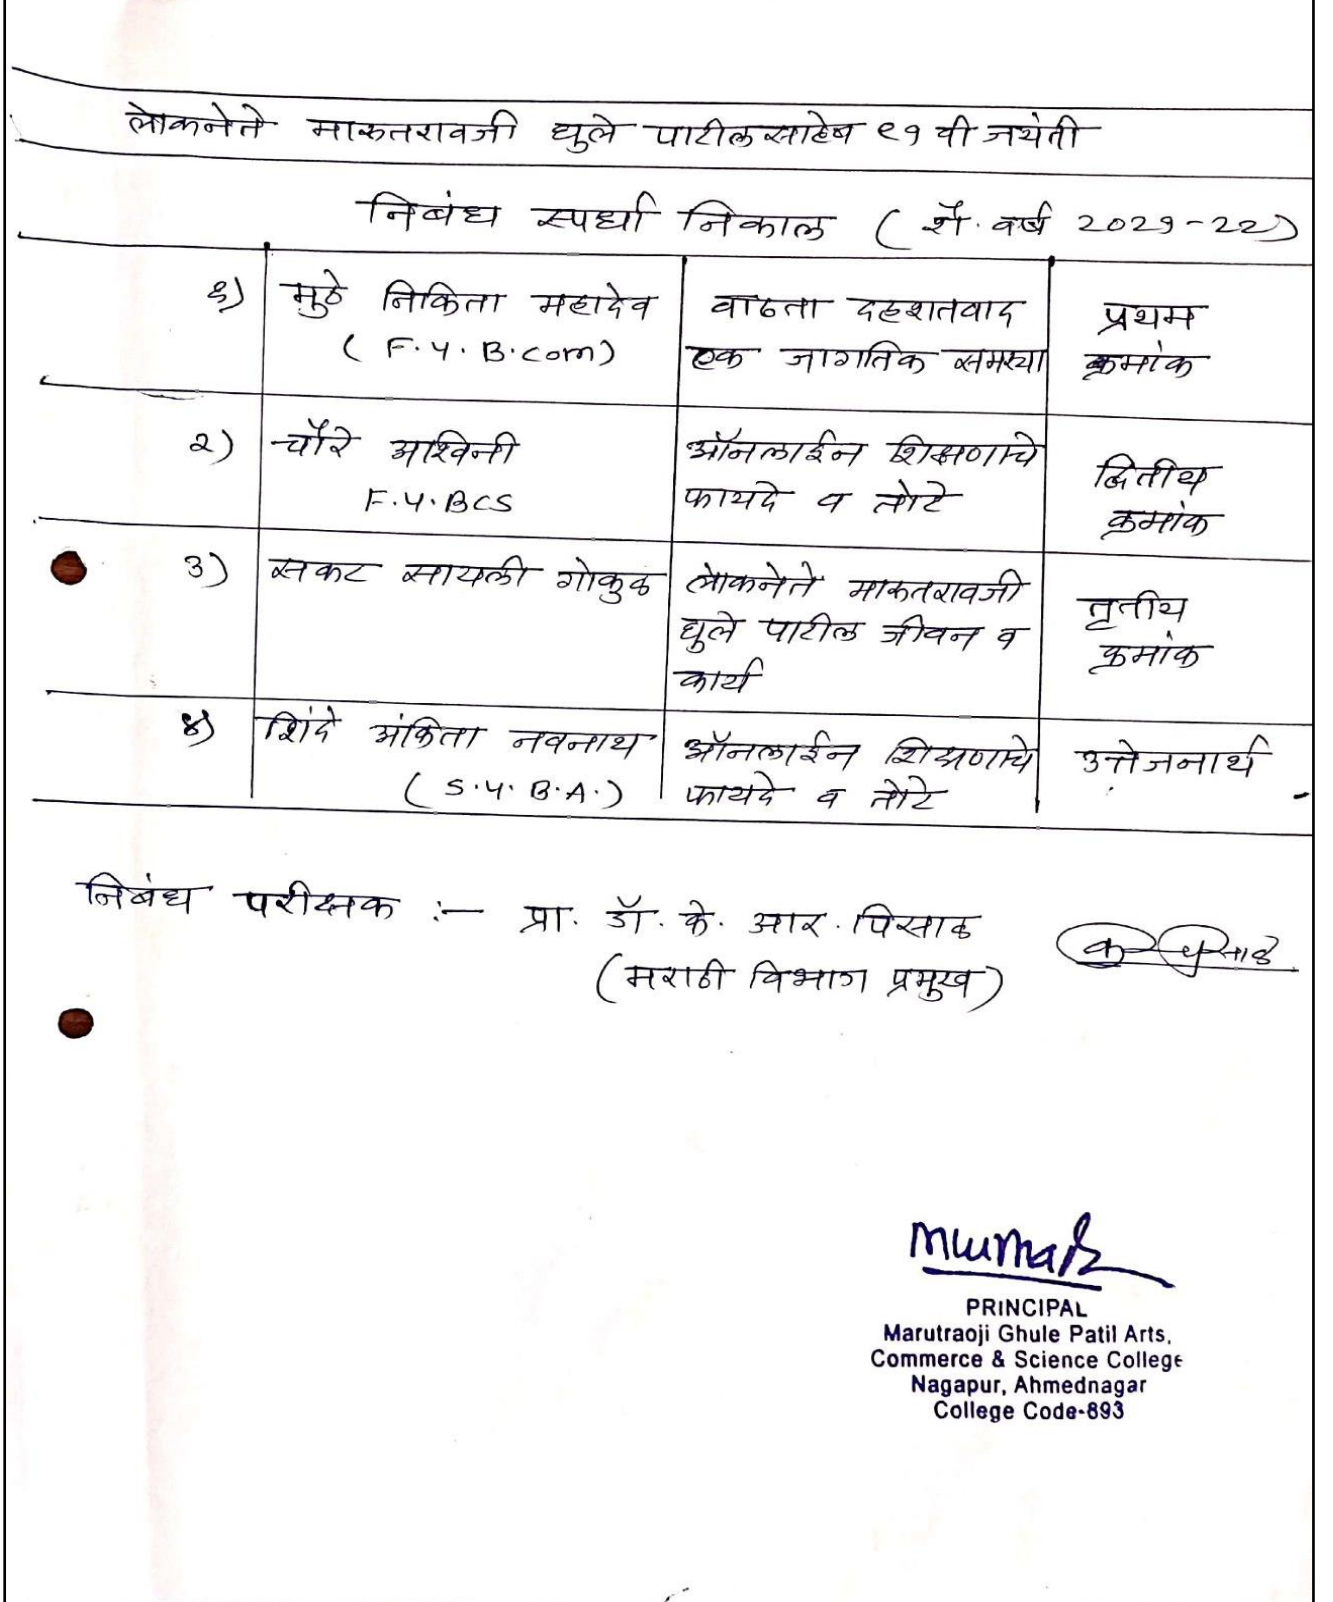 लोकनेते मारुतरावजी घुले पाटील साहेब ९१ वी जयंती
निबंध स्पर्धा निकाल ( शै. वर्ष 2021-22)
१) मुठे निकिता महादेव
( F.Y. B.com)
वाढता दहशतवाद
एक जागतिक समस्या
प्रथम
क्रमांक
२) चौरे अश्विनी
F.Y.BCS
ऑनलाईन शिक्षणाचे
फायदे व तोटे
द्वितीय
क्रमांक
३) सकट सायली गोकुळ
लोकनेते मारुतरावजी
घुले पाटील जीवन व
कार्य
तृतीय
क्रमांक
४) शिंदे अंकिता नवनाथ
( S.Y. B.A.)
ऑनलाईन शिक्षणाचे
फायदे व तोटे
उत्तेजनार्थ
निबंध परीक्षक :- प्रा. डॉ. के. आर. पिसाळ
(मराठी विभाग प्रमुख)
PRINCIPAL
Marutraoji Ghule Patil Arts,
Commerce & Science College
Nagapur, Ahmednagar
College Code-893